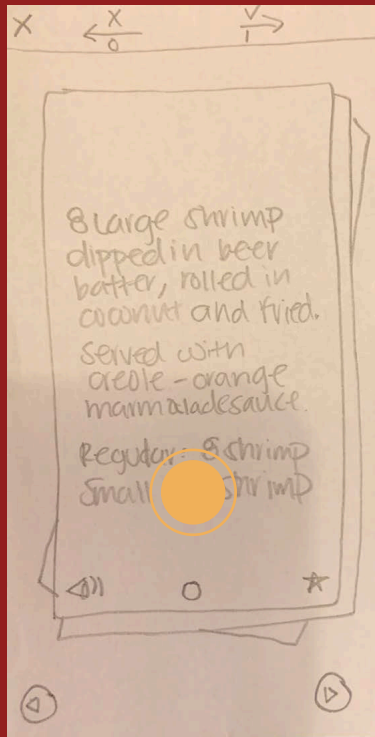 X
X
0
V
1
8 Large shrimp
dipped in beer
batter, rolled in
coconut and fried.
Served with
creole - orange
marmaladesauce.
Regular: 8 shrimp
Small shrimp